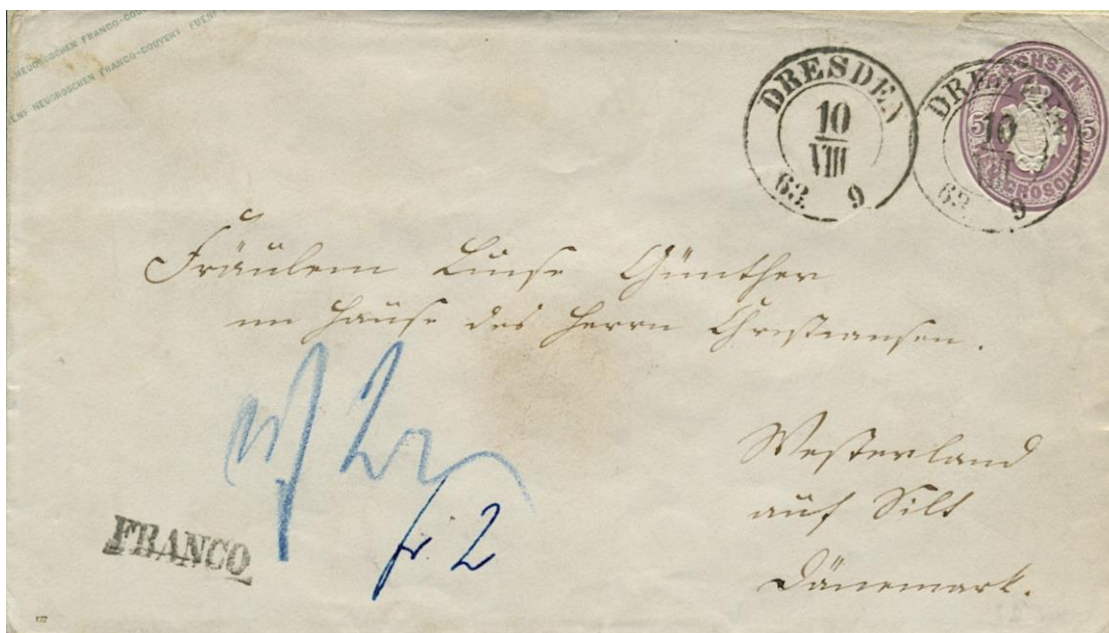 FÜNF NEUGROSCHEN FRANCO-COUVERT FUENF
NEUGROSCHEN FRANCO-COUVERT
DRESDEN
10
VIII
63. 9
DRESDEN
10
VIII
63. 9
SACHSEN
5 5
NEUGROSCHEN
Fräulein Luise Günther
im Hause des Herrn Christiansen.
Westerland
auf Silt
Dänemark.
FRANCO
fr. 2
177